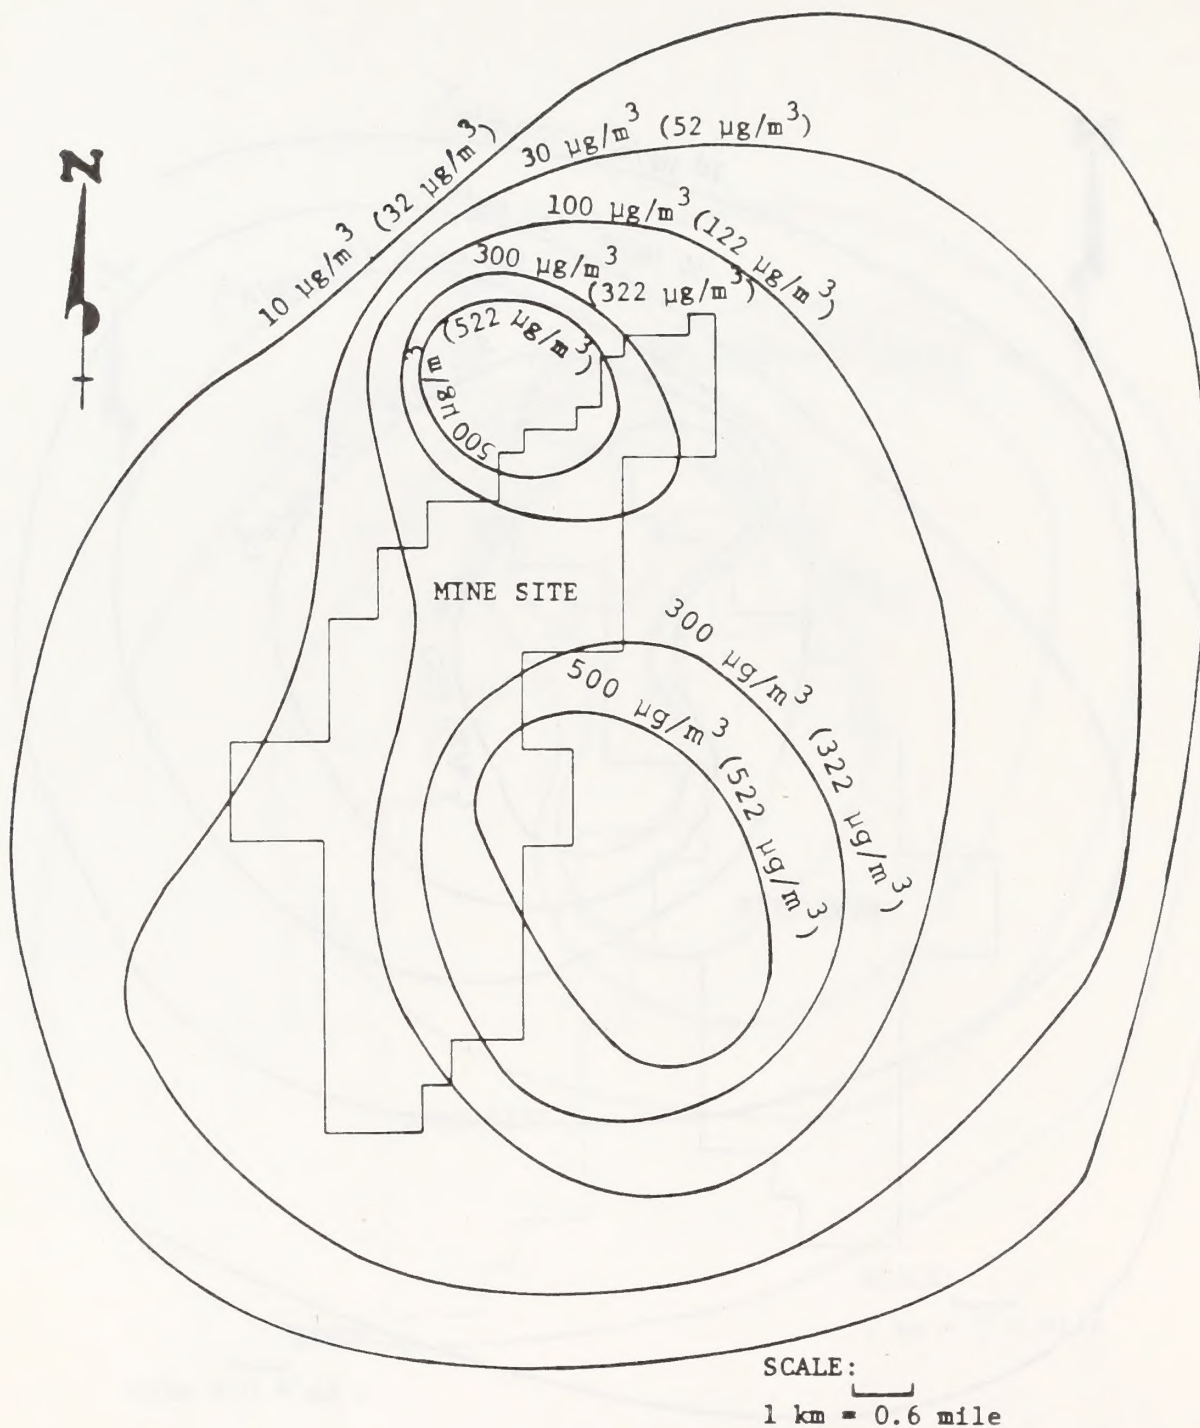 N
10 µg/m³ (32 µg/m³)
30 µg/m³ (52 µg/m³)
100 µg/m³ (122 µg/m³)
300 µg/m³
(322 µg/m³)
500 µg/m³ (522 µg/m³)
MINE SITE
300 µg/m³ (322 µg/m³)
500 µg/m³ (522 µg/m³)
SCALE:
1 km = 0.6 mile